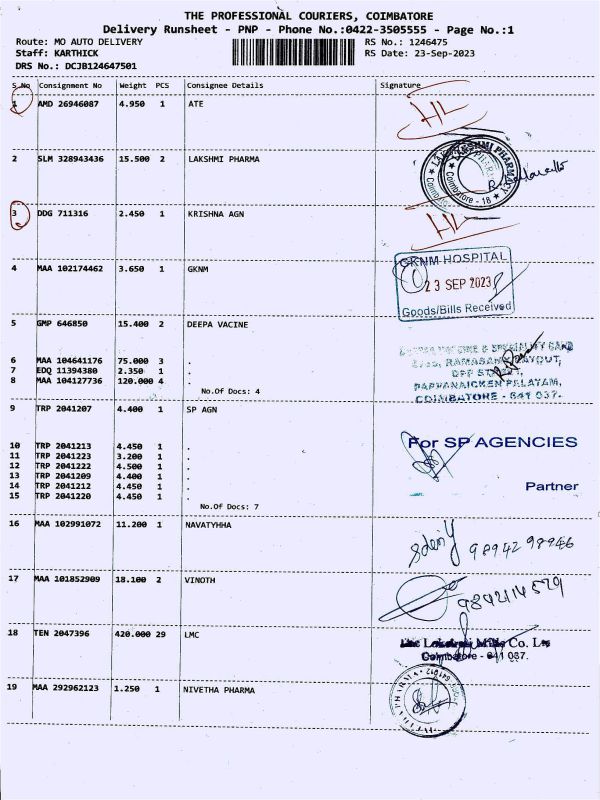 THE PROFESSIONAL COURIERS, COIMBATORE
Delivery Runsheet - PNP - Phone No.:0422-3505555 - Page No.:1
Route: MO AUTO DELIVERY RS No.: 1246475
Staff: KARTHICK RS Date: 23-Sep-2023
DRS No.: DCJB124647501
S.No Consignment No Weight PCS Consignee Details Signature
1 AMD 26946087 4.950 1 ATE
HL
2 SLM 328943436 15.500 2 LAKSHMI PHARMA
LAKSHMI PHARMACY
Coimbatore - 18
3 DDG 711316 2.450 1 KRISHNA AGN
HL
4 MAA 102174462 3.650 1 GKNM
GKNM HOSPITAL
23 SEP 2023
Goods/Bills Received
5 GMP 646850 15.400 2 DEEPA VACINE
6 MAA 104641176 75.000 3 .
7 EDQ 11394380 2.350 1 .
8 MAA 104127736 120.000 4 .
No.Of Docs: 4
PAPPANAICKEN PALAYAM,
COIMBATORE - 641 037.
9 TRP 2041207 4.400 1 SP AGN
10 TRP 2041213 4.450 1 .
11 TRP 2041223 3.200 1 .
12 TRP 2041222 4.500 1 .
13 TRP 2041209 4.400 1 .
14 TRP 2041212 4.450 1 .
15 TRP 2041220 4.450 1 .
No.Of Docs: 7
For SP AGENCIES
Partner
16 MAA 102991072 11.200 1 NAVATYHHA
98942 98946
17 MAA 101852909 18.100 2 VINOTH
9842114529
18 TEN 2047396 420.000 29 LMC
The Lakshmi Mills Co. Ltd
Coimbatore - 641 037.
19 MAA 292962123 1.250 1 NIVETHA PHARMA